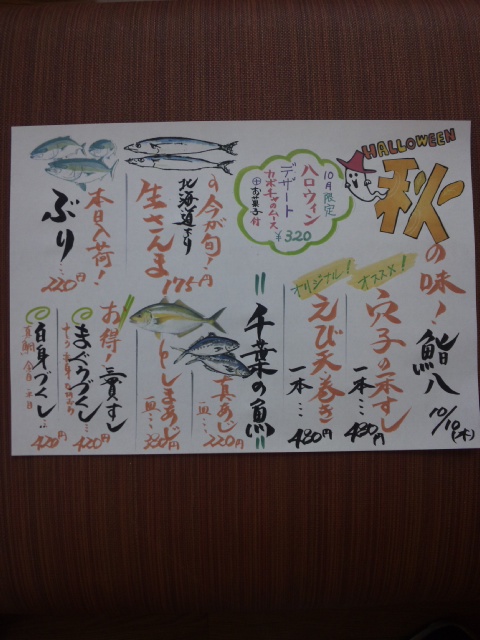 HALLOWEEN
秋の味!
鮨八
10/10(木)
オススメ!
穴子の一本すし
一本… 480円
オリジナル!
えび天巻き
一本… 480円
10月限定
ハロウィン
デザート
カボチャのムース
お菓子付
¥320
=千葉の魚=
真あじ
一皿… 220円
しまあじ
一皿… 330円
今が旬!
北海道より
生さんま
175円
本日入荷!
ぶり
… 220円
お得!三貫すし
まぐろづくし…
420円
白身づくし…
420円